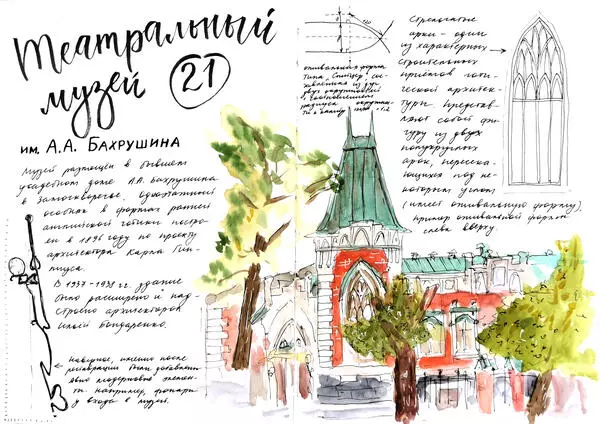 Театральный
музей
21
им. А.А. Бахрушина
Музей размещён в бывшем
усадебном доме А.А. Бахрушина
в Замоскворечье. Одноэтажный
особняк в формах ранней
английской готики постро-
ен в 1896 году по проекту
архитектора Карла Гип-
пиуса.
В 1937-1938 гг. здание
было расширено и над-
строено архитектором
Ильёй Бондаренко.
наверное, именно после
реставрации были добавлены
элемен-
ты. например, фонари
у входа в музей.
оживальная форма
типа
двух окружностей
радиуса
Стрельчатые
арки - один
из характерных
строительных
приёмов готи-
ческой архитек-
туры. Представ-
ляют собой фи-
гуру из двух
полукруглых
арок, пересека-
ющихся под не-
которым углом
(имеет оживальную форму).
пример оживальной формы
слева вверху.